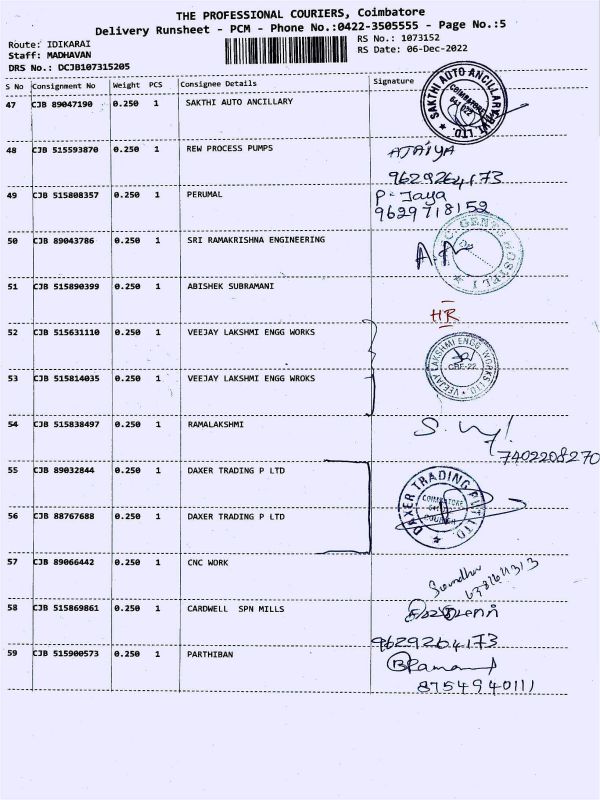 THE PROFESSIONAL COURIERS, Coimbatore
Delivery Runsheet - PCM - Phone No.:0422-3505555 - Page No.:5
Route: IDIKARAI
RS No.: 1073152
Staff: MADHAVAN
RS Date: 06-Dec-2022
DRS No.: DCJB107315205
S No Consignment No Weight PCS Consignee Details Signature
47 CJB 89047190 0.250 1 SAKTHI AUTO ANCILLARY
SAKTHI AUTO ANCILLARY PVT. LTD.
COIMBATORE
641 022
48 CJB 515593870 0.250 1 REW PROCESS PUMPS
9629264173
49 CJB 515808357 0.250 1 PERUMAL P. Jaya
9629718152
50 CJB 89043786 0.250 1 SRI RAMAKRISHNA ENGINEERING
GENTS HOSTEL
51 CJB 515890399 0.250 1 ABISHEK SUBRAMANI
HR
52 CJB 515631110 0.250 1 VEEJAY LAKSHMI ENGG WORKS
VEEJAY LAKSHMI ENGG WORKS LTD
CBE-22
53 CJB 515814035 0.250 1 VEEJAY LAKSHMI ENGG WROKS
54 CJB 515838497 0.250 1 RAMALAKSHMI
7402208270
55 CJB 89032844 0.250 1 DAXER TRADING P LTD
DAXER TRADING PVT LTD
COIMBATORE
56 CJB 88767688 0.250 1 DAXER TRADING P LTD
57 CJB 89066442 0.250 1 CNC WORK
58 CJB 515869861 0.250 1 CARDWELL SPN MILLS
9629264173
59 CJB 515900573 0.250 1 PARTHIBAN
8754940111